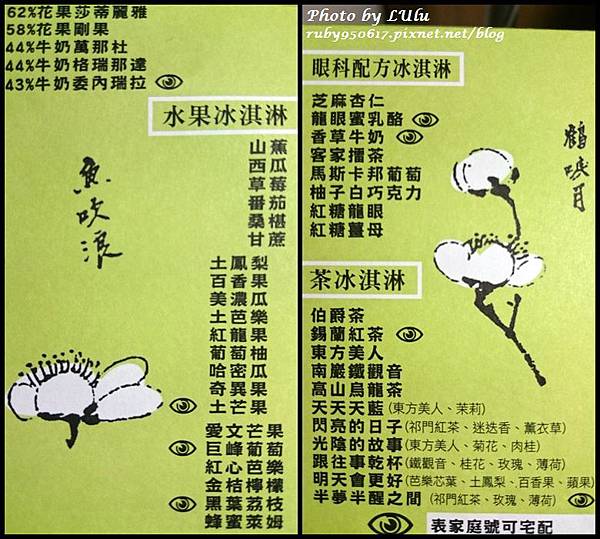 62%花果莎蒂麗雅
58%花果剛果
44%牛奶萬那杜
44%牛奶格瑞那達
43%牛奶委內瑞拉
水果冰淇淋
山蕉
西瓜
草莓
番茄
桑椹
甘蔗
土鳳梨
百香果
美濃瓜
土芭樂
紅龍果
葡萄柚
哈密瓜
奇異果
土芒果
愛文芒果
巨峰葡萄
紅心芭樂
金桔檸檬
黑葉荔枝
蜂蜜萊姆
魚吹浪
Photo by LUlu
ruby950617.pixnet.net/blog
眼科配方冰淇淋
芝麻杏仁
龍眼蜜乳酪
香草牛奶
客家擂茶
馬斯卡邦葡萄
柚子白巧克力
紅糖龍眼
紅糖薑母
鶴唳月
茶冰淇淋
伯爵茶
錫蘭紅茶
東方美人
南巖鐵觀音
高山烏龍茶
天天天藍(東方美人、茉莉)
閃亮的日子(祁門紅茶、迷迭香、薰衣草)
光陰的故事(東方美人、菊花、肉桂)
跟往事乾杯(鐵觀音、桂花、玫瑰、薄荷)
明天會更好(芭樂芯葉、土鳳梨、百香果、蘋果)
半夢半醒之間(祁門紅茶、玫瑰、薄荷)
表家庭號可宅配